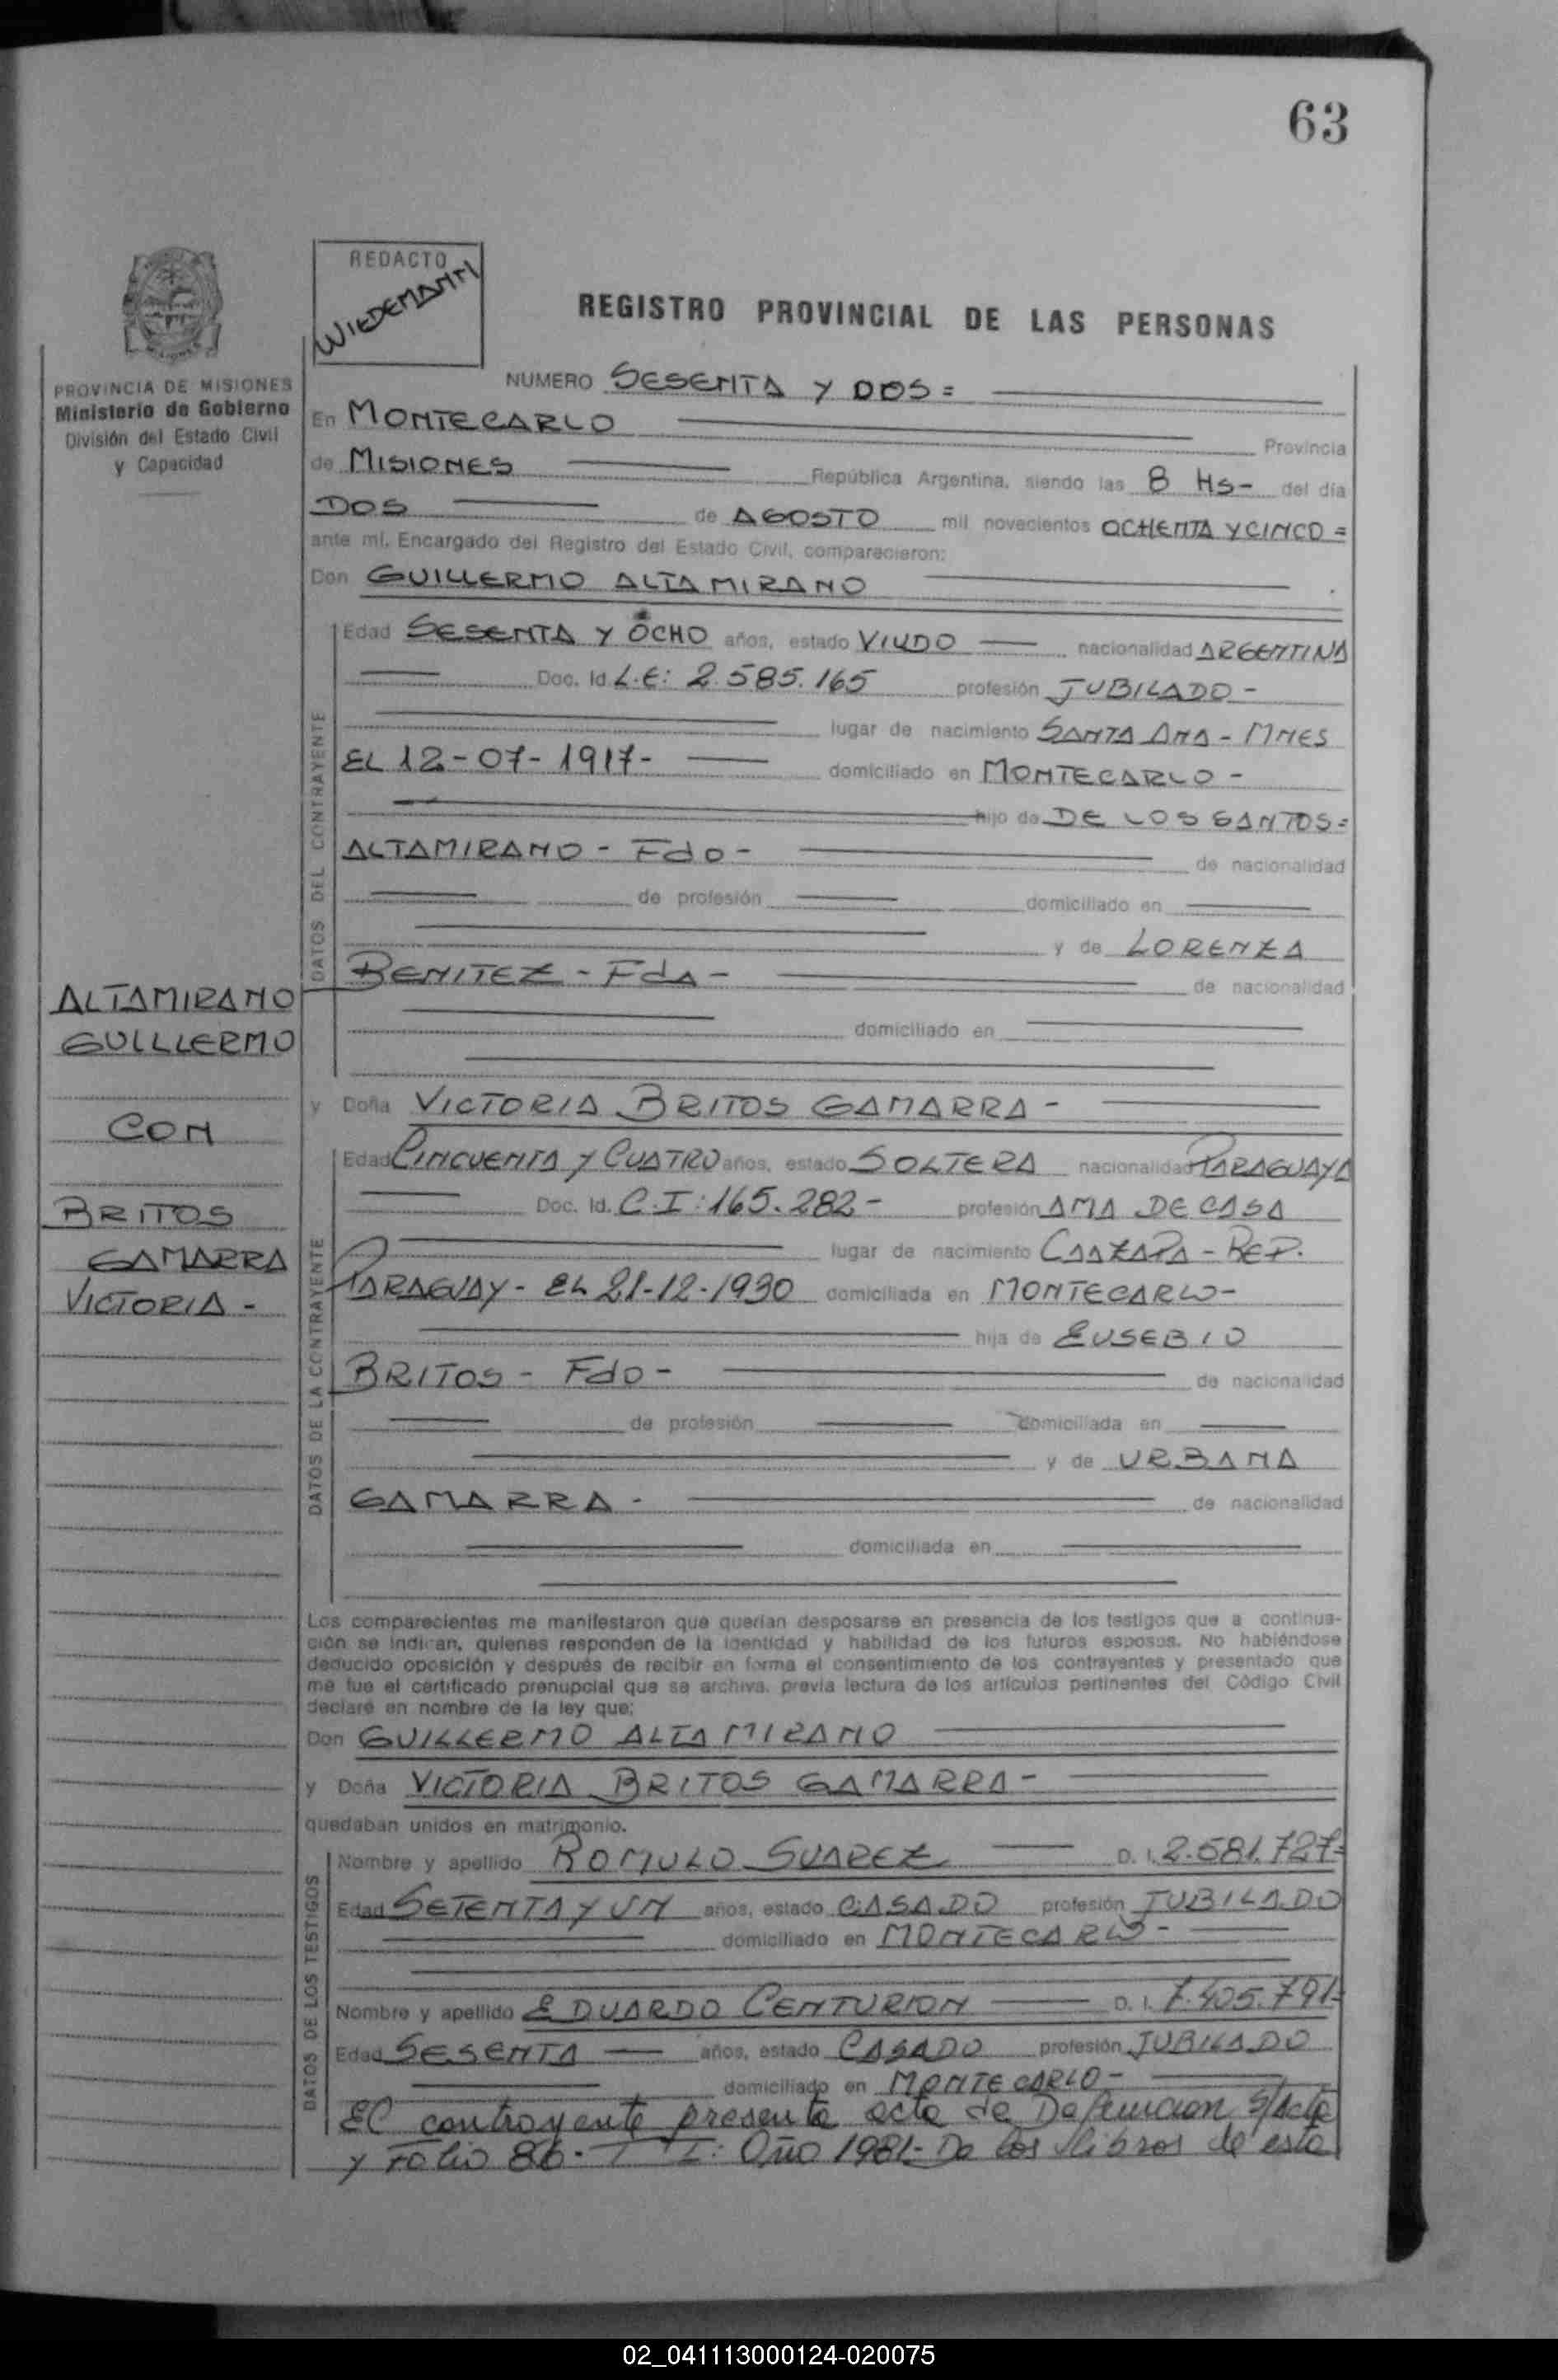 63
REDACTO
WIEDEMANN
REGISTRO PROVINCIAL DE LAS PERSONAS
PROVINCIA DE MISIONES
Ministerio de Gobierno
División del Estado Civil
y Capacidad
NUMERO SESENTA Y DOS =
En MONTECARLO Provincia
de MISIONES República Argentina, siendo las 8 HS- del día
DOS de AGOSTO mil novecientos OCHENTA Y CINCO =
ante mí, Encargado del Registro del Estado Civil, comparecieron:
Don GUILLERMO ALTAMIRANO
Edad SESENTA Y OCHO años, estado VIUDO nacionalidad ARGENTINA
Doc. Id. L.E: 2.585.165 profesión JUBILADO -
lugar de nacimiento SANTA ANA - MNES
EL 12-07-1917- domiciliado en MONTECARLO -
hijo de DE LOS SANTOS =
ALTAMIRANO - Fdo - de nacionalidad
de profesión domiciliado en
y de LORENZA
BENITEZ - Fda - de nacionalidad
domiciliado en
DATOS DEL CONTRAYENTE
ALTAMIRANO
GUILLERMO
CON
BRITOS
GAMARRA
VICTORIA -
y Doña VICTORIA BRITOS GAMARRA -
Edad CINCUENTA Y CUATRO años, estado SOLTERA nacionalidad PARAGUAYA
Doc. Id. C.I: 165.282- profesión AMA DE CASA
lugar de nacimiento CAAZAPA - REP.
PARAGUAY - EL 21-12-1930 domiciliada en MONTECARLO-
hija de EUSEBIO
BRITOS - Fdo - de nacionalidad
de profesión domiciliada en
y de URBANA
GAMARRA - de nacionalidad
domiciliada en
DATOS DE LA CONTRAYENTE
Los comparecientes me manifestaron que querían desposarse en presencia de los testigos que a continua-
ción se indican, quienes responden de la identidad y habilidad de los futuros esposos. No habiéndose
deducido oposición y después de recibir en forma el consentimiento de los contrayentes y presentado que
me fue el certificado prenupcial que se archiva, previa lectura de los artículos pertinentes del Código Civil
declaré en nombre de la ley que:
Don GUILLERMO ALTAMIRANO
y Doña VICTORIA BRITOS GAMARRA -
quedaban unidos en matrimonio.
Nombre y apellido ROMULO SUAREZ D. I. 2.581.727-
Edad SETENTA Y UN años, estado CASADO profesión JUBILADO
domiciliado en MONTECARLO -
Nombre y apellido EDUARDO CENTURION D. I. 7.405.791-
Edad SESENTA años, estado CASADO profesión JUBILADO
domiciliado en MONTECARLO -
DATOS DE LOS TESTIGOS
El contrayente presenta acta de Defuncion S/Acta
y Folio 86- T° I: Año 1981- De los libros de esta
02_041113000124-020075